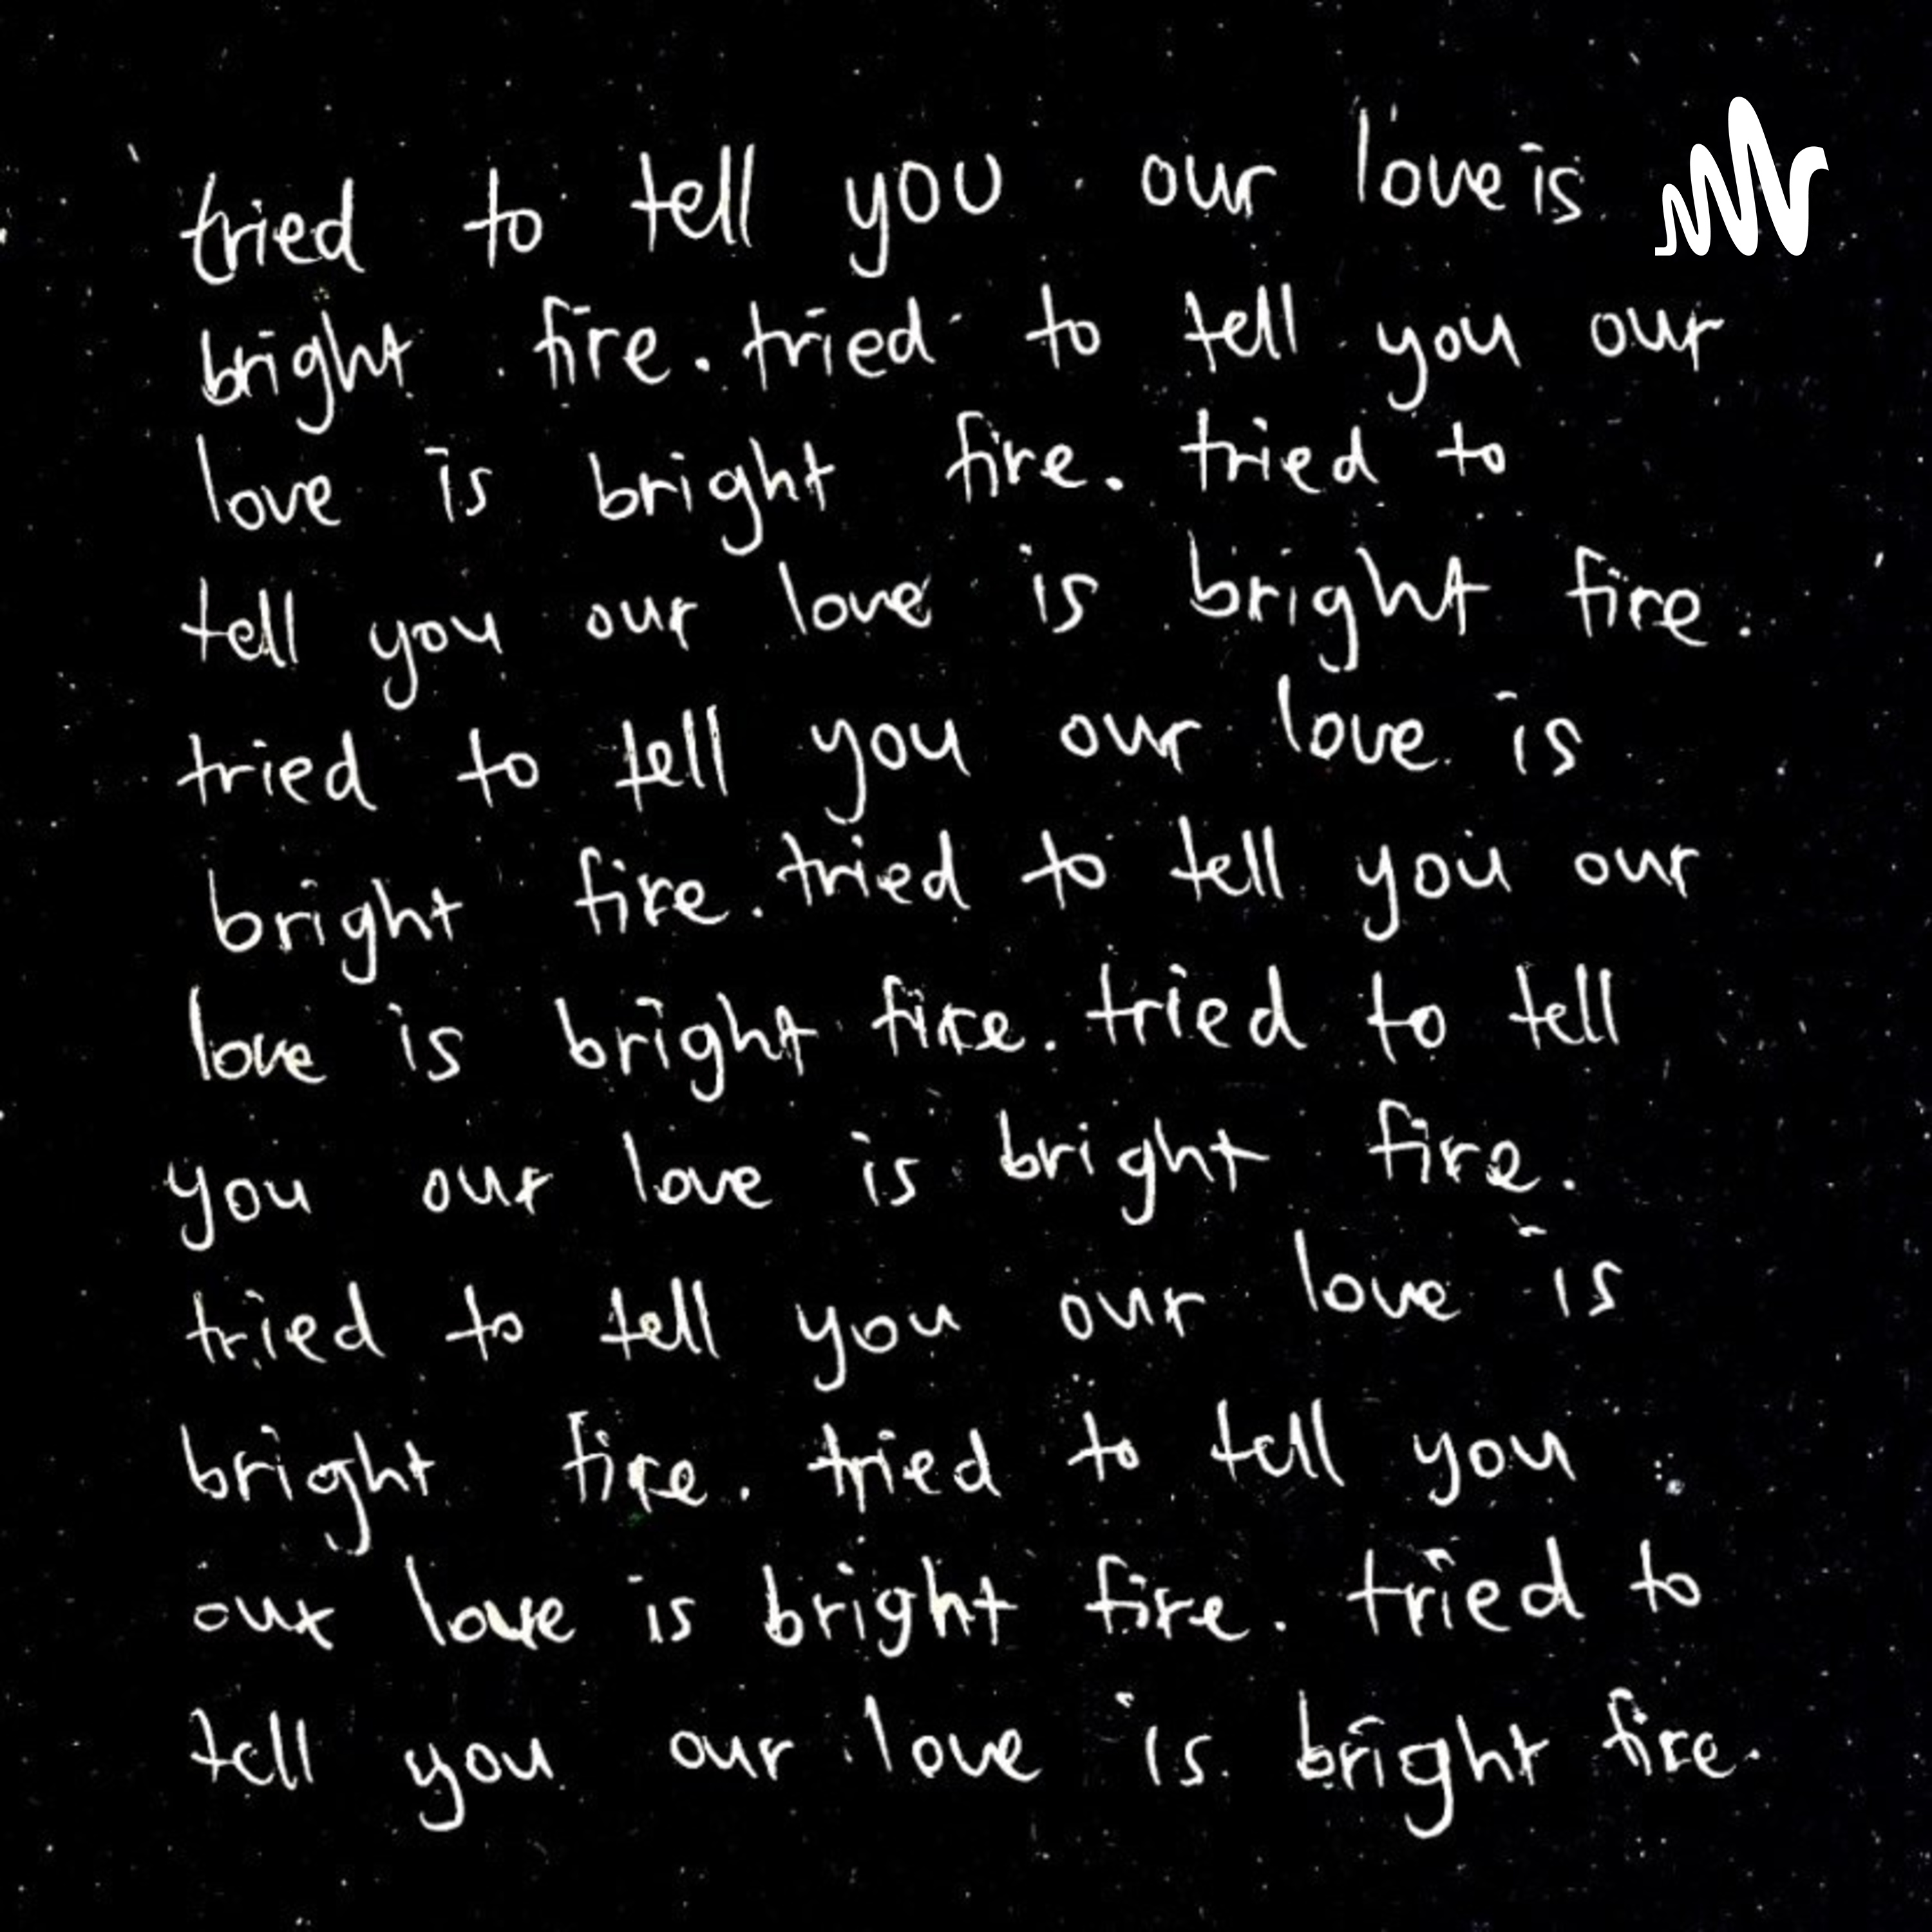 tried to tell you our love is
bright fire. tried to tell you our
love is bright fire. tried to
tell you our love is bright fire.
tried to tell you our love is
bright fire. tried to tell you our
love is bright fire. tried to tell
you our love is bright fire.
tried to tell you our love is
bright fire. tried to tell you
our love is bright fire. tried to
tell you our love is bright fire.